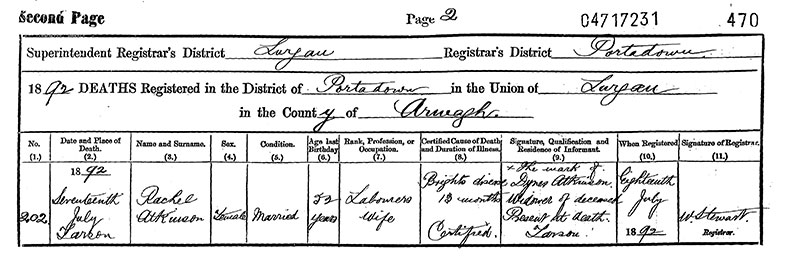 Second Page Page 2 04717231 470
Superintendent Registrar's District Lurgan Registrar's District Portadown
1892 DEATHS Registered in the District of Portadown in the Union of Lurgan
in the County of Armagh
No. (1.) Date and Place of Death. (2.) Name and Surname. (3.) Sex. (4.) Condition. (5.) Age last Birthday (6.) Rank, Profession, or Occupation. (7.) Certified Cause of Death and Duration of Illness. (8.) Signature, Qualification and Residence of Informant. (9.) When Registered (10.) Signature of Registrar. (11.)
202 1892 Seventeenth July Tarson
Rachel Atkinson
Female
Married
52 years
Labourers Wife
Brights disease 13 months Certified.
x The mark of Dynes Atkinson. Widower of deceased Present at death. Tarson.
Eighteenth July 1892
W. Stewart Registrar.